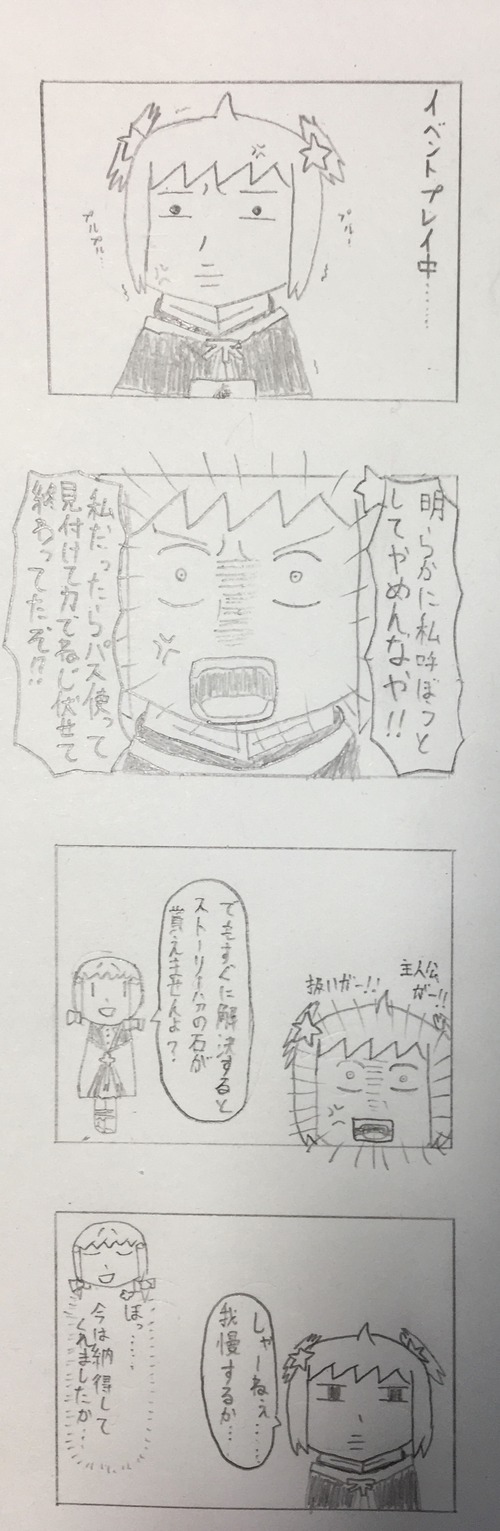 イベントプレイ中……
プルー
プルプル…
明らかに私呼ぼっと
してやめんなや!!
私だったらパス使って
見付けて力でねじ伏せて
終わってたぞ!?
主人公
がー!!
扱いがー!!
でもすぐに解決すると
ストーリー分の石が
貰えませんよ?
しゃーねぇ……
我慢するか…
ほっ……
今は納得して
くれましたか…